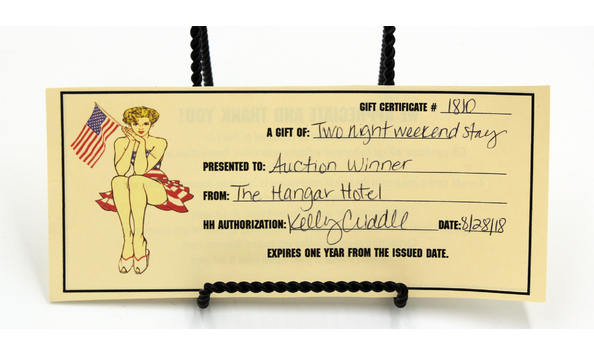 GIFT CERTIFICATE # 1810
A GIFT OF: Two night weekend stay
PRESENTED TO: Auction Winner
FROM: The Hangar Hotel
HH AUTHORIZATION: Kelly DATE: 8/28/18
EXPIRES ONE YEAR FROM THE ISSUED DATE.